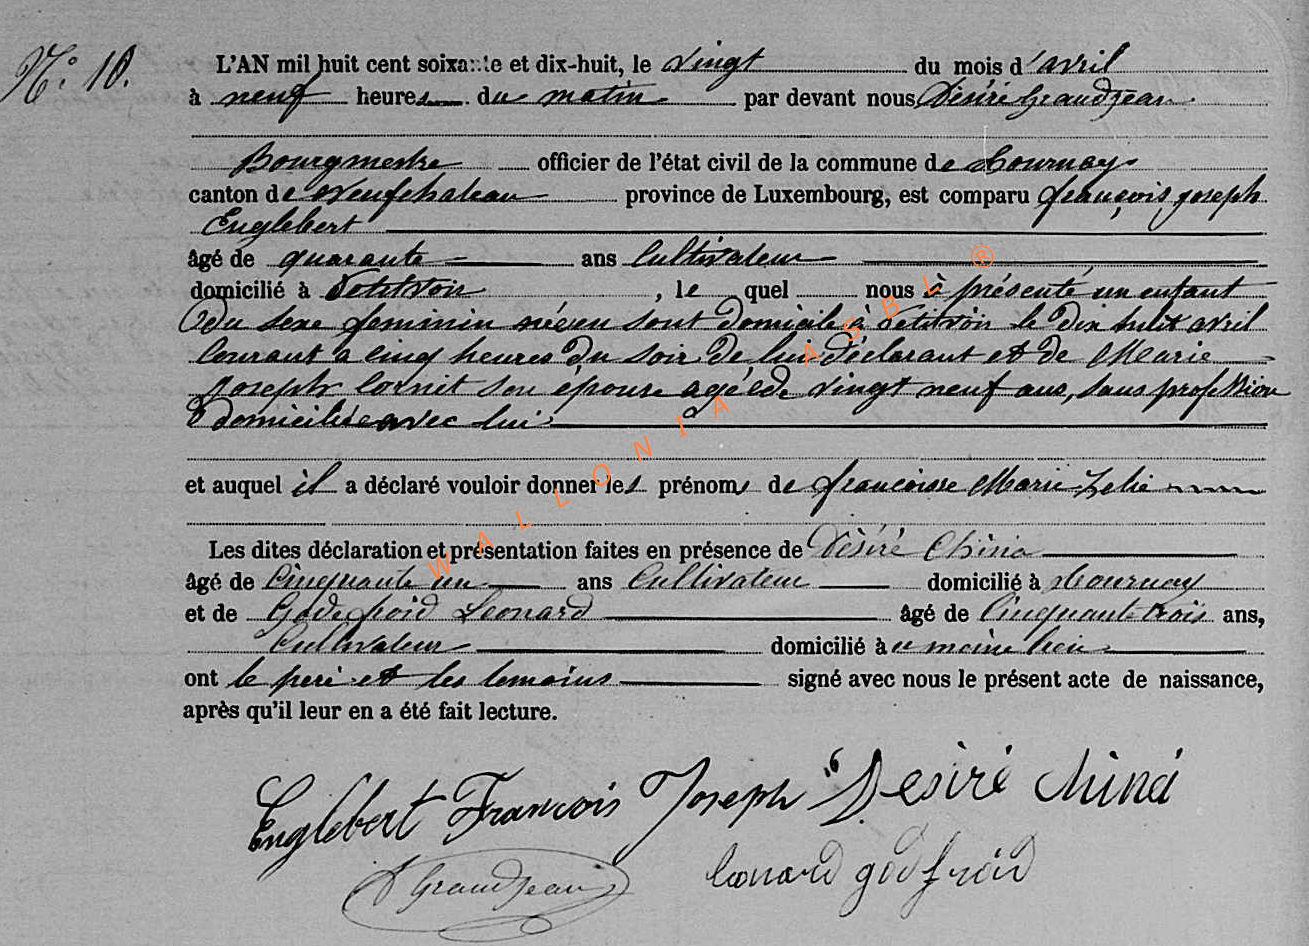 N° 10.
L'AN mil huit cent soixante et dix-huit, le vingt du mois d'avril
à neuf heures du matin par devant nous Désiré Grandjean
Bourgmestre officier de l'état civil de la commune de Tournay
canton de Neufchateau province de Luxembourg, est comparu françois joseph
Englebert
âgé de quarante ans Cultivateur
domicilié à Petitvoir, le quel nous à présenté un enfant
du sexe feminin née en sont domicile à Petitvoir le dix huit avril
Courant a cinq heures du soir de lui déclarant et de Marie
joseph Cornet son épouse agéede vingt neuf ans, sans profession
domiciliée avec lui
et auquel il a déclaré vouloir donner les prénoms de francoisse Marie Zelie
Les dites déclaration et présentation faites en présence de Désiré
âgé de Cinquante un ans Cultivateur domicilié à Tournay
et de Godefroid Leonard âgé de Cinquante trois ans,
Cultivateur domicilié à ce même lieu
ont le peré et les temoins signé avec nous le présent acte de naissance,
après qu'il leur en a été fait lecture.
Englebert François Joseph Désiré
D Grandjean Leonard godfroid
WALLONIA ASBL ®